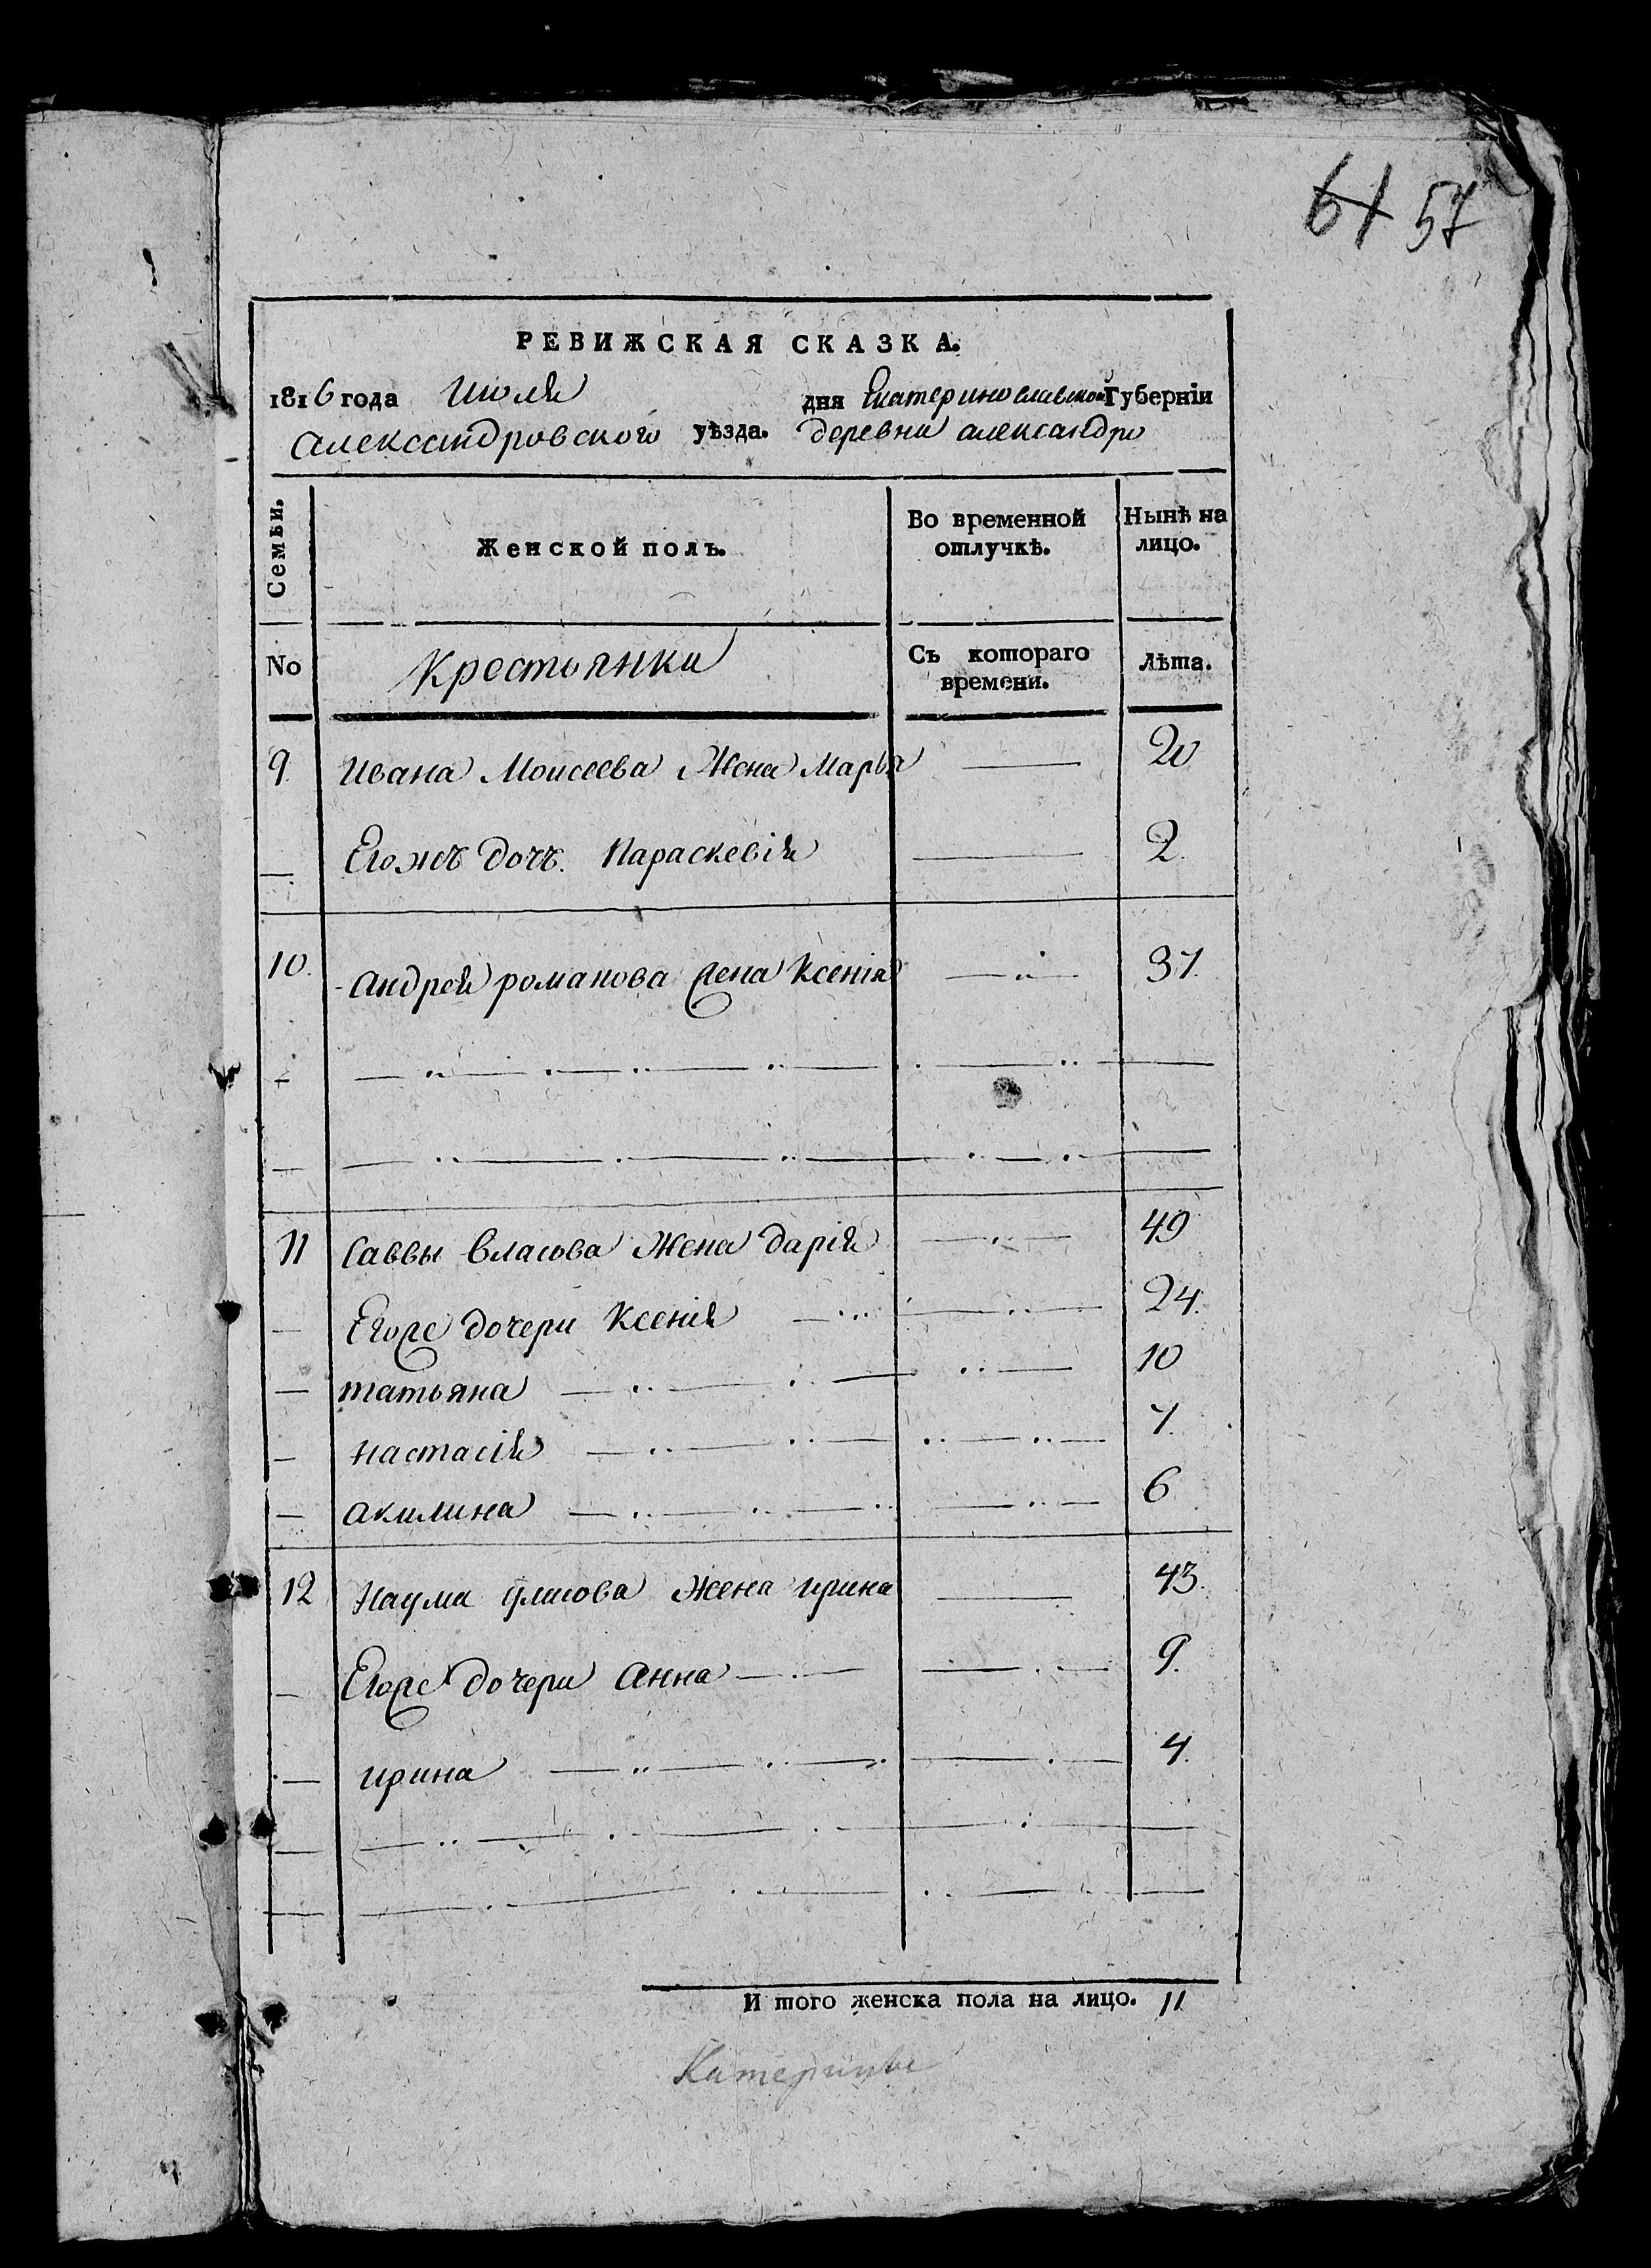 61 57
РЕВИЖСКАЯ СКАЗКА.
1816 года Июля дня Екатеринославской Губерніи
Александровского уѣзда. деревни александро
Семьи. Женской полъ. Во временной отлучкѣ. Нынѣ на лицо.
No Крестьянки Съ котораго времени. Лѣта.
9. Ивана Моисеева Жена Марья — 20
— Егожъ дочъ. Параскевія — 2.
10. Андрей романова Жена Ксенія — 37.
11 Саввы власова Жена дарія — 49
— Егоже дочери Ксенія — 24.
— татьяна — 10
— настасія — 7.
— акилина — 6
12 Наума Жена ирина — 43.
— Егоже дочери Анна — 9.
— ирина — 4.
И того женска пола на лицо. 11